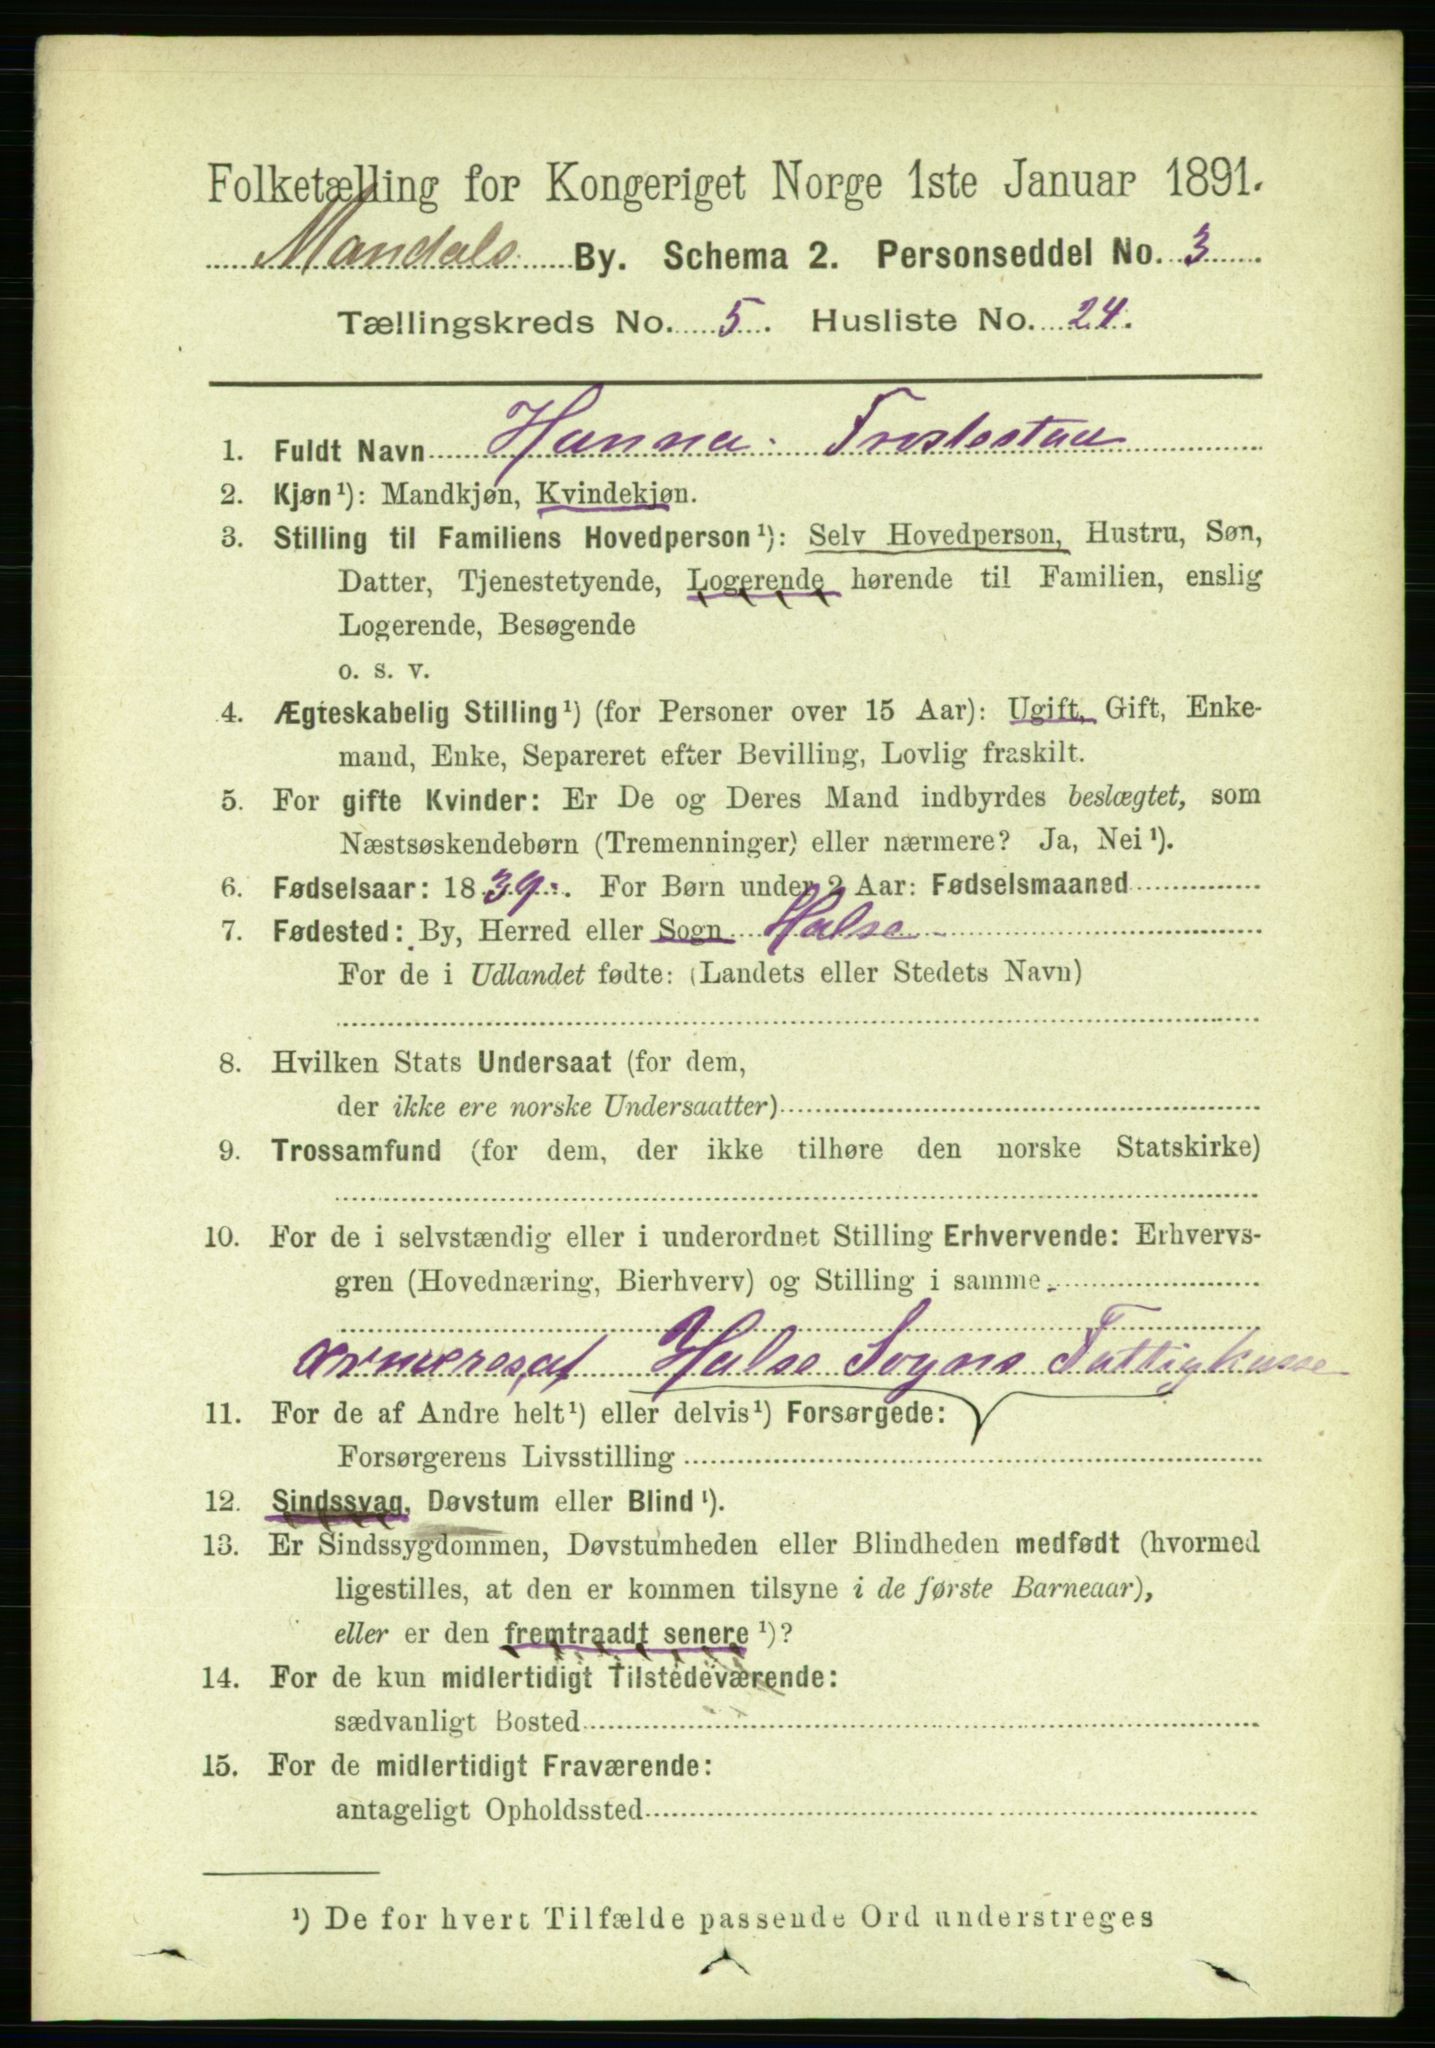 Folketælling for Kongeriget Norge 1ste Januar 1891.
Mandals By. Schema 2. Personseddel No. 3
Tællingskreds No. 5. Husliste No. 24.
1. Fuldt Navn Hanna
2. Kjøn¹): Mandkjøn, Kvindekjøn.
3. Stilling til Familiens Hovedperson¹): Selv Hovedperson, Hustru, Søn,
Datter, Tjenestetyende, Logerende hørende til Familien, enslig
Logerende, Besøgende
o. s. v.
4. Ægteskabelig Stilling¹) (for Personer over 15 Aar): Ugift, Gift, Enke-
mand, Enke, Separeret efter Bevilling, Lovlig fraskilt.
5. For gifte Kvinder: Er De og Deres Mand indbyrdes beslægtet, som
Næstsøskendebørn (Tremenninger) eller nærmere? Ja, Nei¹).
6. Fødselsaar: 1839. For Børn under 2 Aar: Fødselsmaaned
7. Fødested: By, Herred eller Sogn Halse
For de i Udlandet fødte: (Landets eller Stedets Navn)
8. Hvilken Stats Undersaat (for dem,
der ikke ere norske Undersaatter)
9. Trossamfund (for dem, der ikke tilhøre den norske Statskirke)
10. For de i selvstændig eller i underordnet Stilling Erhvervende: Erhvervs-
gren (Hovednæring, Bierhverv) og Stilling i samme
af Halse Sogns Fattigkasse
11. For de af Andre helt¹) eller delvis¹) Forsørgede:
Forsørgerens Livsstilling
12. Sindssvag, Døvstum eller Blind¹).
13. Er Sindssygdommen, Døvstumheden eller Blindheden medfødt (hvormed
ligestilles, at den er kommen tilsyne i de første Barneaar),
eller er den fremtraadt senere¹)?
14. For de kun midlertidigt Tilstedeværende:
sædvanligt Bosted
15. For de midlertidigt Fraværende:
antageligt Opholdssted
¹) De for hvert Tilfælde passende Ord understreges